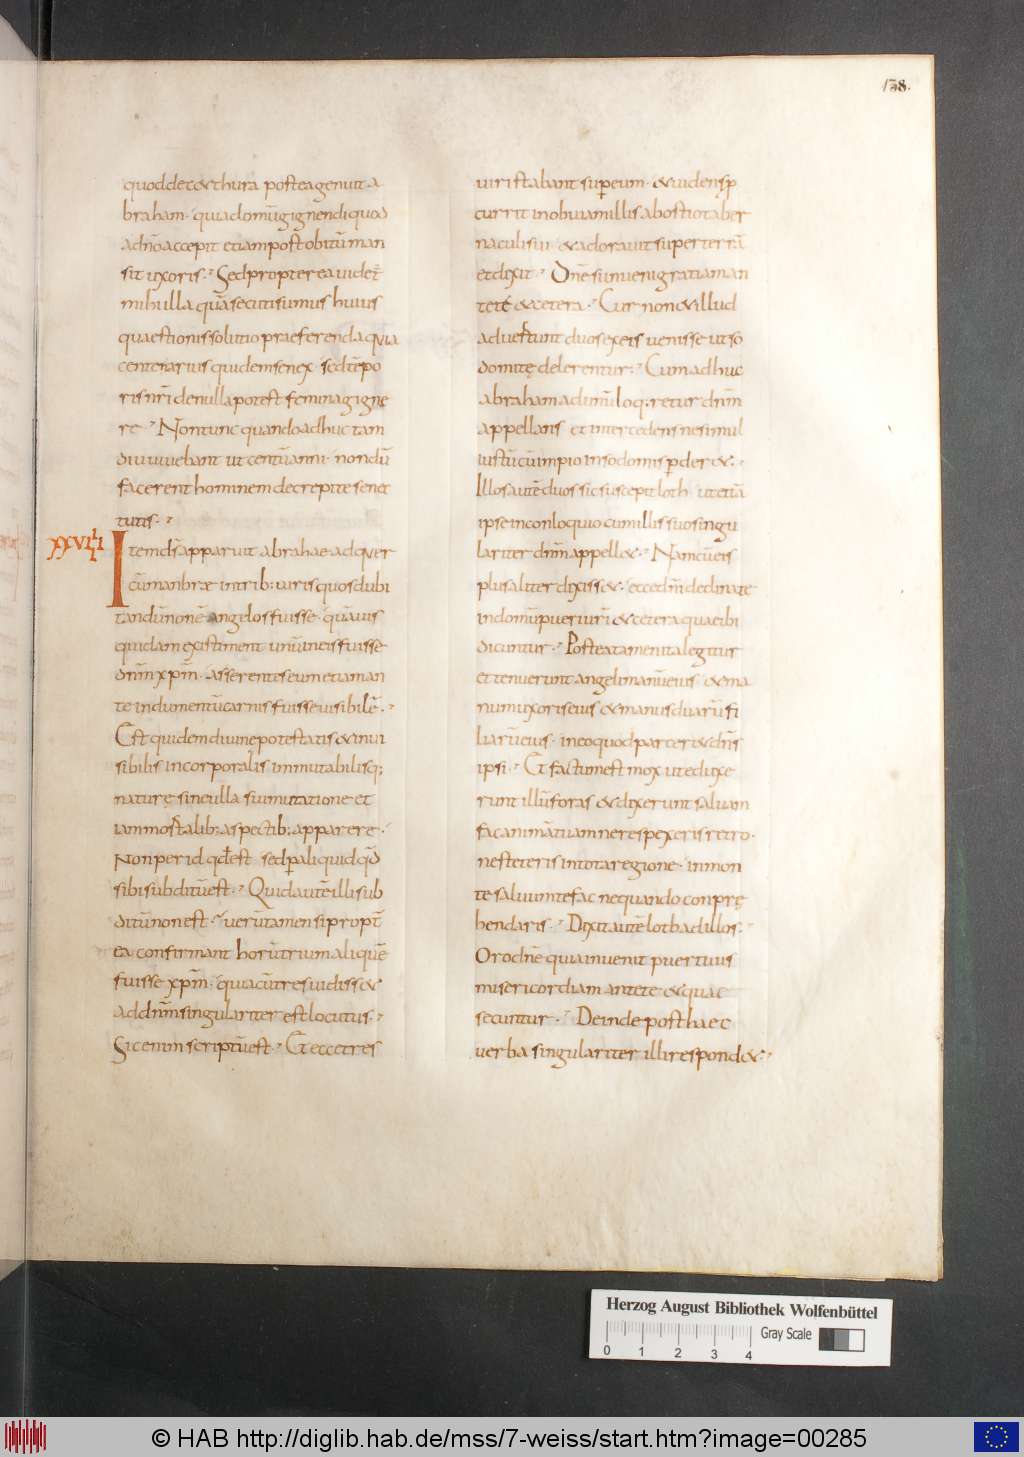 138.
quod de c&thura postea genuit a
braham· quia donu gignendi quod
a dno accepit etiam post obitū man
sit uxoris· Sed propterea uidet
mihi illa quā secuti sumus huius
quaestionis solutio praeferenda quia
centenarius quidem senex· sed tēpo
ris nri de nulla potest femina gigne
re· Non tunc quando adhuc tam
diu uiuebant ut centū anni· nondū
facerent hominem decrepite senec
tutis·
XXVIIII
Item dſ apparuit abrahae ad quer
cū manbrae in trib; uiris quos dubi
tandū non ē angelos fuisse· quāuis
quidam existiment unū in eis fuisse
dnm xpm· asserentes eum etiam an
te indumentū carnis fuisse uisibilē·
Est quidem diuine potestatis & inui
sibilis incorporalis inmutabilisq;
nature sine ulla sui mutatione et
iam mortalib; aspectib; apparere·
Non per id qđ est sed p aliquid qđ
sibi subditū est· Quid autē illi sub
ditū non est· uerūtamen si propt
ea confirmant horū trium aliquē
fuisse xpm· quia cū tres uidiss&
ad dnm singulariter est locutus·
Sic enim scriptū est· Et ecce tres
uiri stabant sup eum· & uidens p
currit in obuiam illis ab ostio taber
naculi sui & adorauit super terrā
et dixit· Dne si inueni gratiam an
te te & cetera· Cur non & illud
aduertunt duos ex eis uenisse ut so
domitę delerentur· Cum adhuc
abraham ad unū loqueretur dnm
appellans et intercedens ne simul
iustū cū impio in sodomis pder&·
Illos autē duos sic suscepit loth ut etiā
ipse in conloquio cum illis suo singu
lariter dnm appell&· Nam cū eis
pluraliter dixiss& ecce dni declinate
in domū pueri uri & cetera quae ibi
dicuntur· Postea tamen ita legitur
et tenuerunt angeli manū eius & ma
num uxoris eius & manus duarū fi
liarū eius· in eo quod parcer& dns
ipsi· Et factum est mox ut eduxe
runt illū foras & dixerunt saluam
fac animā tuam ne respexeris retro·
ne steteris in tota regione· in mon
te saluum te fac ne quando conprę
hendaris· Dixit autē loth ad illos·
Oro dne quia inuenit puer tuus
misericordiam ante te & quae
secuntur· Deinde post haec
uerba singulariter illi respond&·
Herzog August Bibliothek Wolfenbüttel
0 1 2 3 4
Gray Scale
© HAB http://diglib.hab.de/mss/7-weiss/start.htm?image=00285